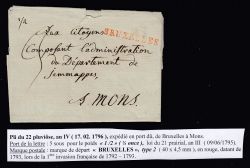 1/2
Aux Citoyens
BRUXELLES
Composant l'administration
du Département de
Jemmappes
à Mons.
Pli du 22 pluviôse, an IV ( 17. 02. 1796 ), expédié en port dû, de Bruxelles à Mons.
Port de la lettre : 5 sous pour le poids « 1/2 » (½ once), loi du 21 prairial, an III ( 09/06/1795).
Marque postale : marque de départ « BRUXELLES », type 2 ( 40 x 4,5 mm ), en rouge, datant de
1793, lors de la 1ère invasion française de 1792 – 1793.